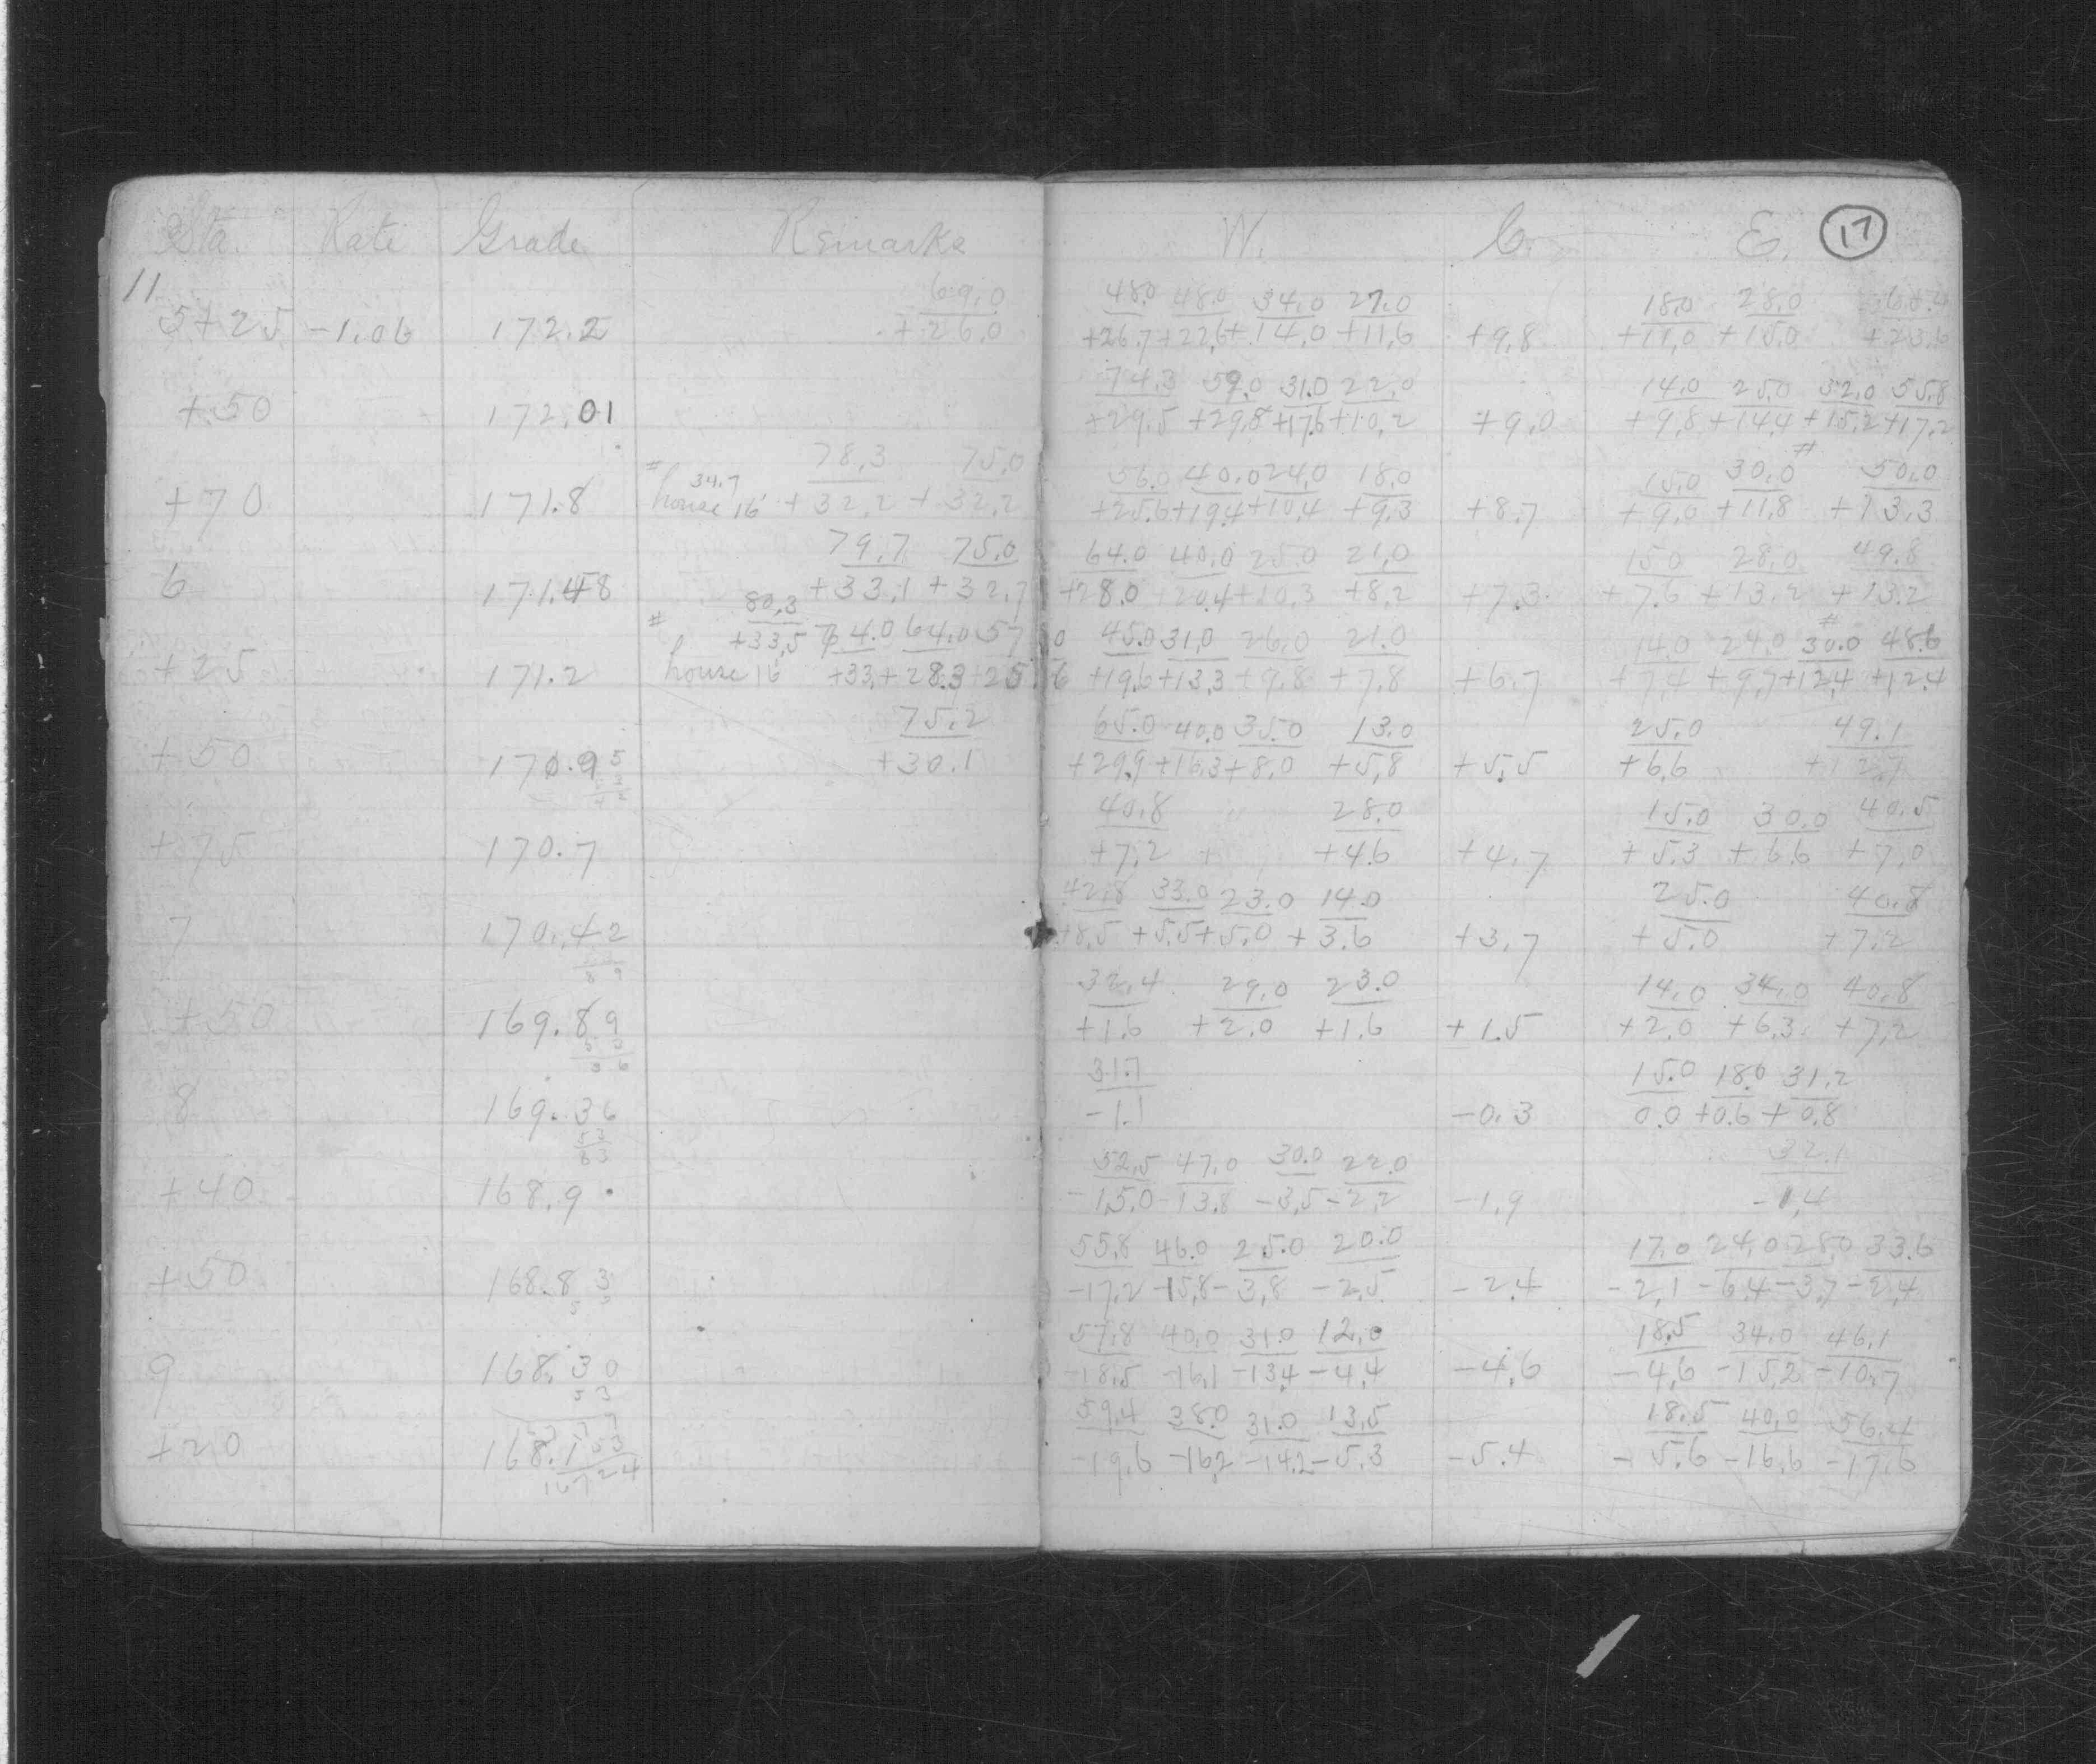 Sta. Rate Grade Remarks W. C. E. 17
11
69.0 48.0 48.0 34.0 27.0 18.0 28.0
5+25 -1.06 172.2 +26.0 +26.7 +22.6 +14.0 +11.6 +9.8 +11.0 +15.0 +23.6
74.3 59.0 31.0 22.0 14.0 25.0 32.0 55.8
+50 172.01 +29.5 +29.8 +17.6 +10.2 +9.0 +9.8 +14.4 +15.2 +17.2
# 34.7 78.3 75.0 56.0 40.0 24.0 18.0 15.0 30.0 # 50.0
+70 171.8 house 16 +32.2 +32.2 +25.6 +19.4 +10.4 +9.3 +8.7 +9.0 +11.8 +13.3
79.7 75.0 64.0 40.0 25.0 21.0 15.0 28.0 49.8
6 171.48 +33.1 +32.7 +28.0 +20.4 +10.3 +8.2 +7.3 +7.6 +13.2 +13.2
80.3 #
# +33.5 74.0 64.0 57.0 45.0 31.0 26.0 21.0 14.0 24.0 30.0 48.6
+25 171.2 house 16 +33. +28.3 +25.6 +19.6 +13.3 +9.8 +7.8 +6.7 +7.4 +9.7 +12.4 +12.4
75.2 65.0 40.0 35.0 13.0 25.0 49.1
+50 170.95 +30.1 +29.9 +16.3 +8.0 +5.8 +5.5 +6.6 +12.1
40.8 28.0 15.0 30.0 40.5
+75 170.7 +7.2 +4.6 +4.7 +5.3 +6.6 +7.0
42.8 33.0 23.0 14.0 25.0 40.8
7 170.42 +8.5 +5.5 +5.0 +3.6 +3.7 +5.0 +7.2
8 9
32.4 29.0 23.0 14.0 34.0 40.8
+50 169.89 +1.6 +2.0 +1.6 +1.5 +2.0 +6.3 +7.2
5 3
3 6
31.7 15.0 18.0 31.2
8 169.36 -1.1 -0.3 0.0 +0.6 +0.8
53
83
52.5 47.0 30.0 22.0 32.1
+40 168.9 -15.0 -13.8 -3.5 -2.2 -1.9 -1.4
55.8 46.0 25.0 20.0 17.0 24.0 28.0 33.6
+50 168.83 -17.2 -15.8 -3.8 -2.5 -2.4 -2.1 -6.4 -3.7 -2.4
5 3
57.8 40.0 31.0 12.0 18.5 34.0 46.1
9 168.30 -18.5 -16.1 -13.4 -4.4 -4.6 -4.6 -15.2 -10.7
53
59.4 38.0 31.0 13.5 18.5 40.0 56.4
+20 168.1 -19.6 -16.2 -14.2 -5.3 -5.4 -5.6 -16.6 -17.6
167 24